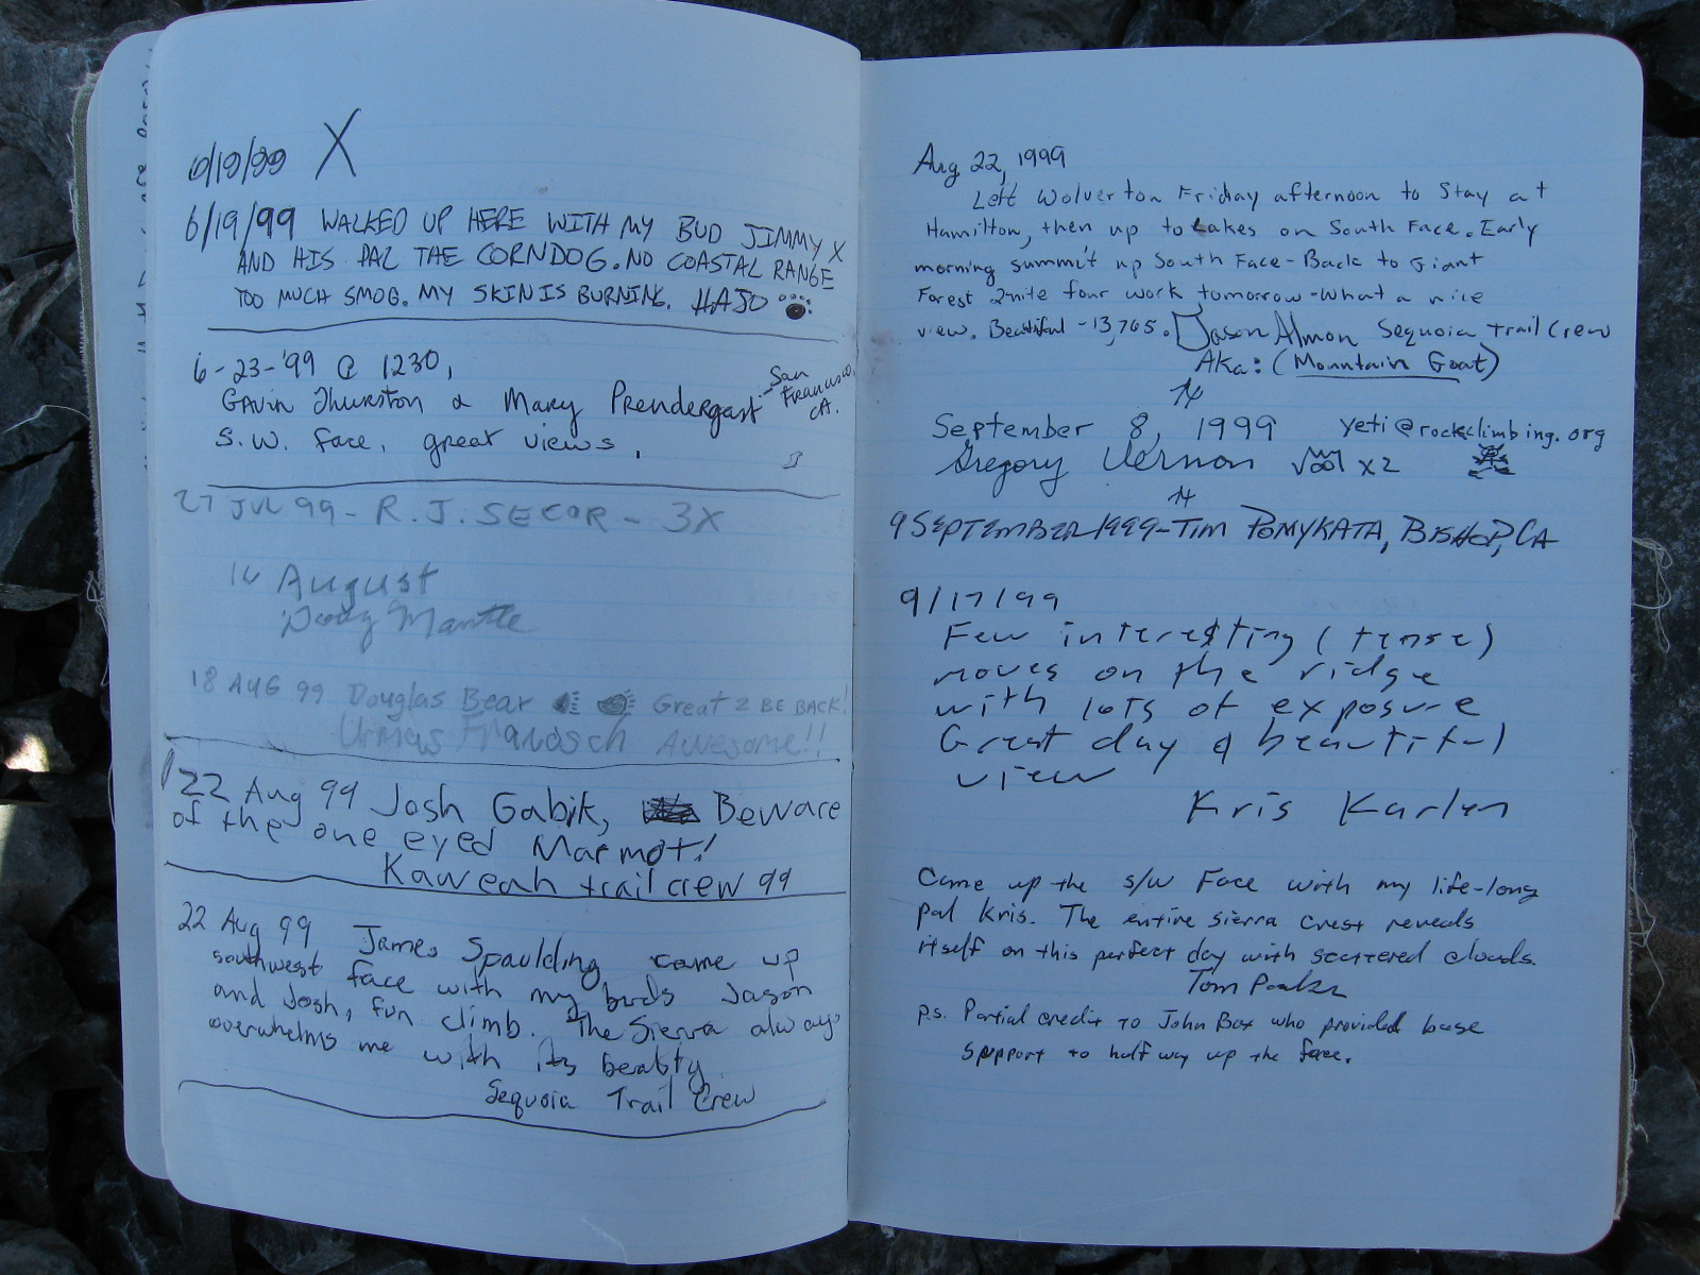 6/19/99 X
6/19/99 WALKED UP HERE WITH MY BUD JIMMY X
AND HIS PAL THE CORNDOG. NO COASTAL RANGE
TOO MUCH SMOG. MY SKIN IS BURNING. HAJO
6-23-'99 @ 1230,
Gavin Thurston & Mary Prendergast - San Francisco, CA.
S.W. face, great views.
27 JUL 99 - R.J. SECOR - 3X
August
Doug Mantle
18 AUG 99 Douglas Bear Great 2 BE BACK!
Urmas Franosch Awesome!!
22 Aug 99 Josh Gabik, Beware
of the one eyed Marmot!
Kaweah trail crew 99
22 Aug 99 James Spaulding came up
southwest face with my buds Jason
and Josh, fun climb. The Sierra always
overwhelms me with its beauty
Sequoia Trail Crew
Aug 22, 1999
Left Wolverton Friday afternoon to Stay at
Hamilton, then up to Lakes on South Face. Early
morning summit up South Face - Back to Giant
Forest 2nite four work tomorrow - What a nice
view. Beautiful - 13,765. Jason Almon Sequoia trail Crew
Aka: (Mountain Goat)
September 8, 1999 yeti@rockclimbing.org
Gregory Vernon x2
9 SEPTEMBER 1999 - TIM POMYKATA, BISHOP, CA
9/17/99
Few interesting (tense)
moves on the ridge
with lots of exposure
Great day & beautiful
view
Kris Karlen
Came up the s/w Face with my life-long
pal Kris. The entire Sierra Crest reveals
itself on this perfect day with scattered clouds.
Tom
p.s. Partial credit to John Box who provided base
support to half way up the face.